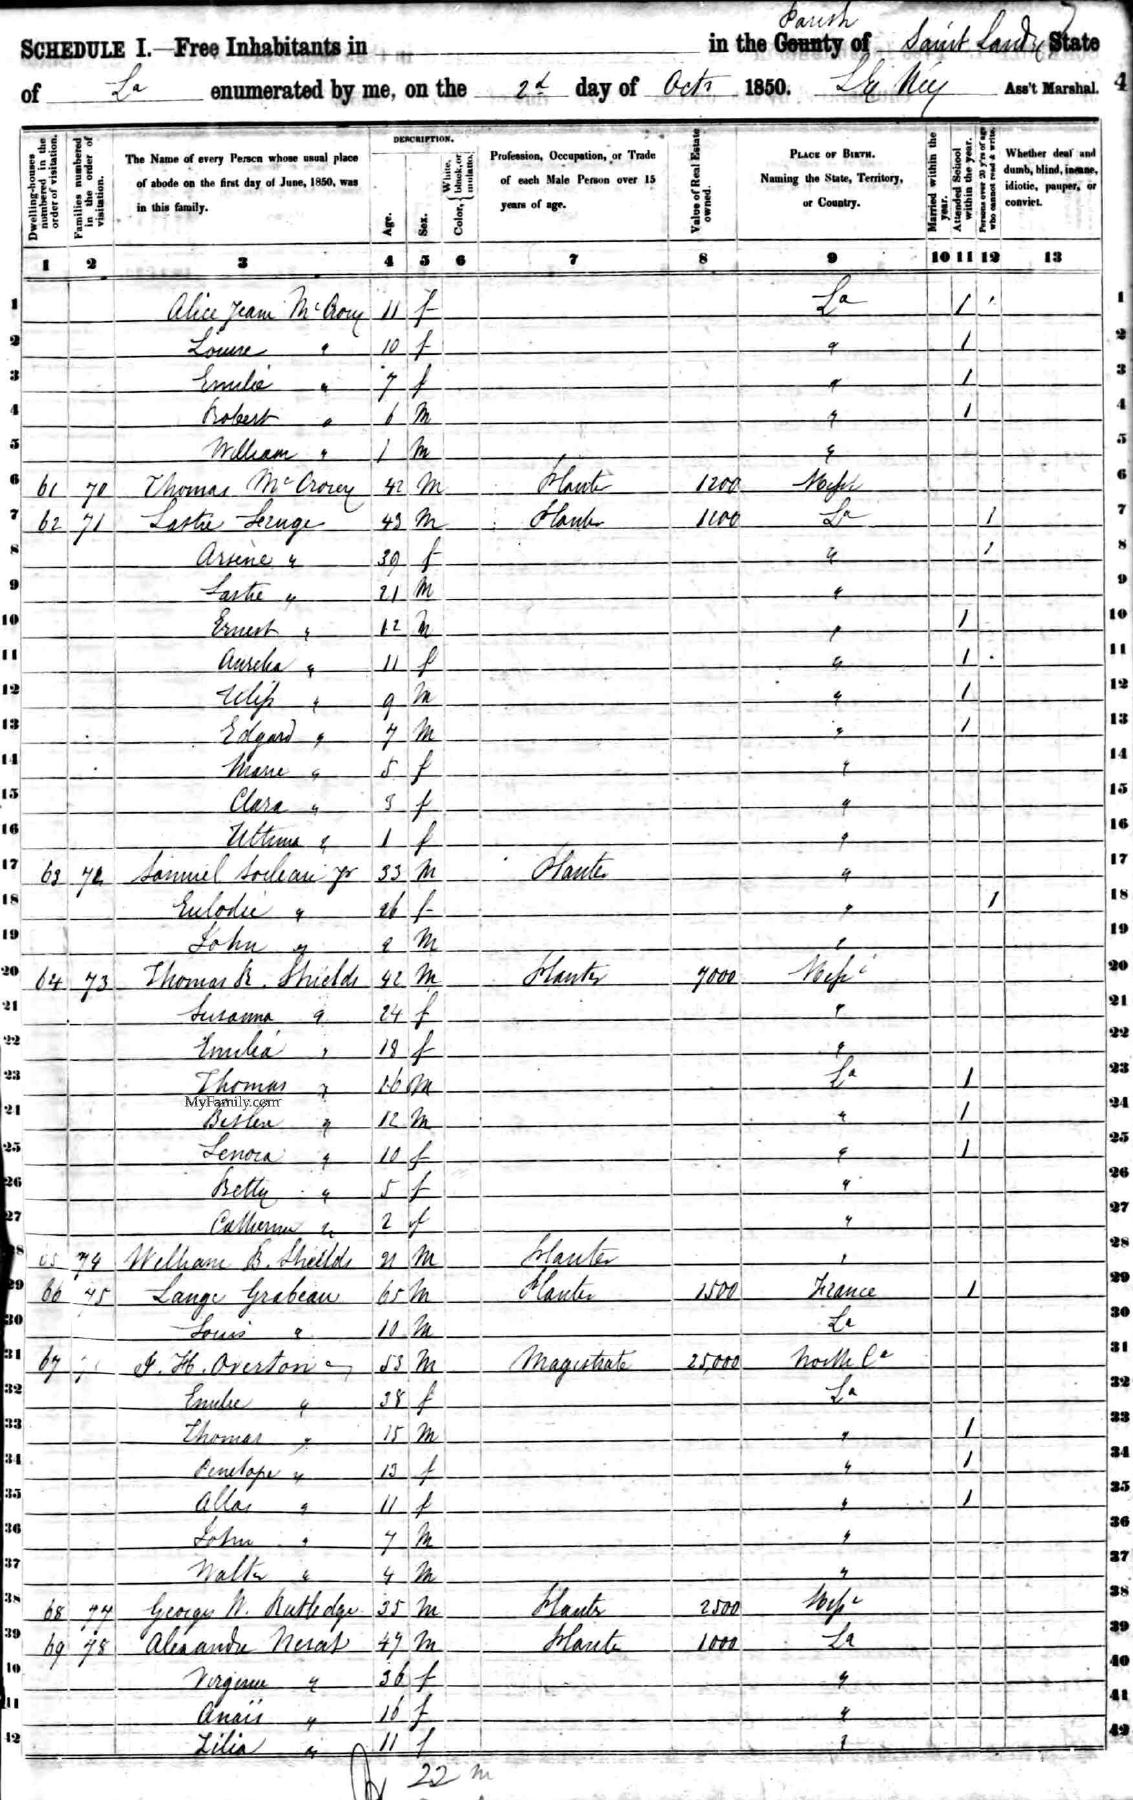 Parish
SCHEDULE I.—Free Inhabitants in in the County of Saint Landry State
of La enumerated by me, on the 2d day of Octr 1850. Ass't Marshal. 4
Dwelling-houses numbered in the order of visitation.
Families numbered in the order of visitation.
The Name of every Person whose usual place of abode on the first day of June, 1850, was in this family.
DESCRIPTION.
Age.
Sex.
Color, White, black, or mulatto.
Profession, Occupation, or Trade of each Male Person over 15 years of age.
Value of Real Estate owned.
PLACE OF BIRTH. Naming the State, Territory, or Country.
Married within the year.
Attended School within the year.
Persons over 20 y'rs of age who cannot read & write.
Whether deaf and dumb, blind, insane, idiotic, pauper, or convict.
1 2 3 4 5 6 7 8 9 10 11 12 13
1 Alice Jean McCrory 11 f La 1 1
2 Louise " 10 f " 1 2
3 Emilie " 7 f " 1 3
4 Robert " 6 M " 1 4
5 William " 1 M " 5
6 61 70 Thomas McCrorey 42 M Planter 1200 Mispi 6
7 62 71 Lastie 43 M Planter 1100 La 1 7
8 Arsène " 39 f " 1 8
9 Lastie " 21 M " 9
10 Ernest " 12 M " 1 10
11 Aurelia " 11 f " 1 11
12 Uliss " 9 M " 1 12
13 Edgard " 7 M " 1 13
14 Marie " 5 f " 14
15 Clara " 3 f " 15
16 Ultima " 1 f " 16
17 63 72 Samuel jr 33 M Planter " 17
18 Eulodie " 26 f " 1 18
19 John " 2 M " 19
20 64 73 Thomas R. Shields 42 M Planter 7000 Mispi 20
21 Susanna " 24 f " 21
22 Emilia " 18 f " 22
23 Thomas " 16 M La 1 23
MyFamily.com
24 " 12 M " 1 24
25 Lenora " 10 f " 1 25
26 Betty " 5 f " 26
27 Catherine " 2 f " 27
28 65 74 William B. Shields 21 M Planter " 28
29 66 75 Lange Grabeau 65 M Planter 1500 France 1 29
30 Louis " 10 M La 30
31 67 J. H. Overton 53 M Magistrate 25,000 North Ca 31
32 Emilie " 38 f La 32
33 Thomas " 15 M " 1 33
34 Penelope " 13 f " 1 34
35 " 11 f " 1 35
36 John " 7 M " 36
37 Walter " 4 M " 37
38 68 77 George W. Rutledge 35 M Planter 2500 Mispi 38
39 69 78 Alexandre Nerat 47 M Planter 1000 La 39
40 Virginie " 36 f " 40
41 Anaïs " 16 f " 41
42 Lilia " 11 f " 42
22 m